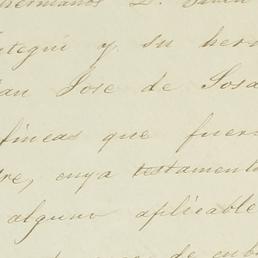 hermanos D.
y su her
José de Sosa
fincas que fuer
re, cuya testament
alguno aplicable
de